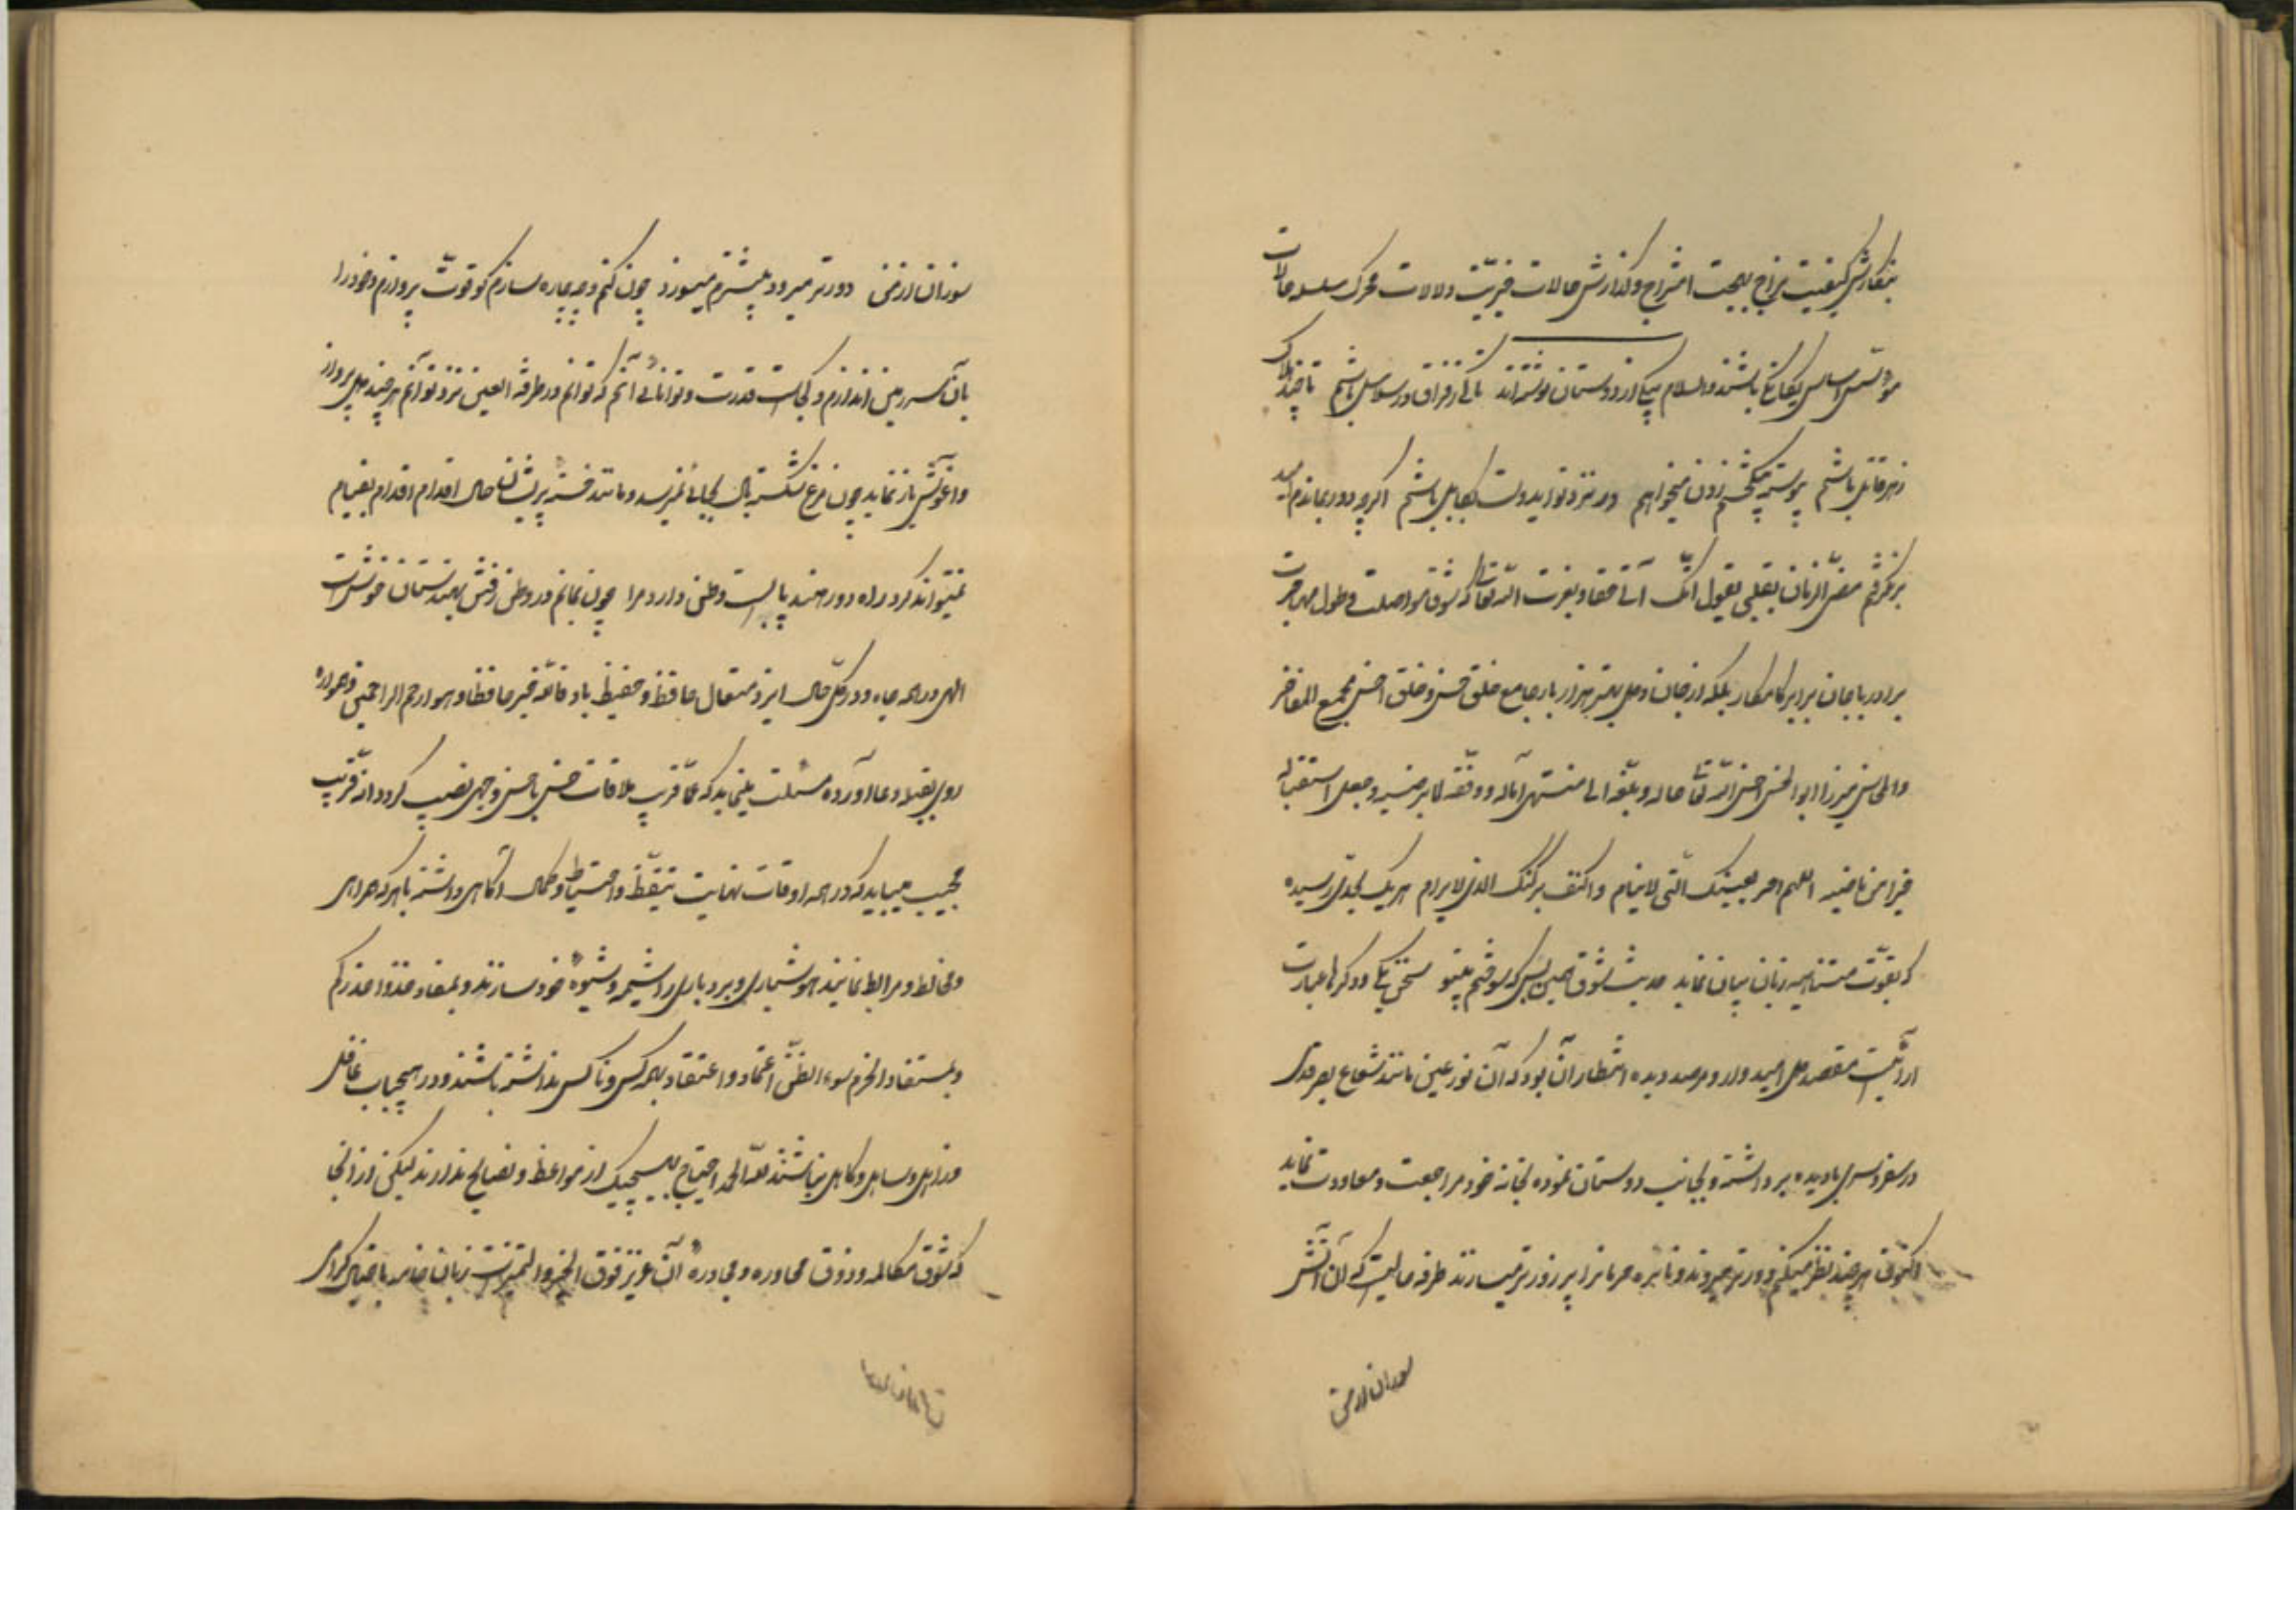 بنگارش کیفیت مزاج بهجت امتزاج و گذارش حالات خیریت دلالات محرک سلسله حالات
موسس اساس یگانگی باشند والسلام بیکی از دوستان نوشته‌اند تا کی ز فراق در سلاسل باشم تا چند هلاک
زهر قاتل باشم پیوسته چشم زدن میخواهم در نزد تو اید دوست باشم اگرچه دور بماندم امید
برنگرفتم مضی الزمان بقلبی یقول انک آت حقا و بعزت الله تعالی که شوق مواصلت و طول مهاجرت
برادر با جان برابر کامکار بلکه از جان و دل بهتر هزار بار جامع خلق حسن و خلق احسن مجمع المفاخر
والمحاسن میرزا ابوالحسن احسن الله تعالی حاله و بلغه الی منتهی آماله و وفقه لما یرضیه و جعل استقباله
خیرا من ماضیه اللهم احرسه بعینک التی لا ینام واکنف برکنک الذی لا یرام هر یک بحدی رسیده
که بقوت متناهیه زبان بیان نماید حدیث شوق همین بس که سوختم بیتو سخن یکی و دگرها عبارت
آرائیست مقصد دل امیدوار و مرصد دیده انتظار آن بود که آن نور عین مانند شعاع بصر قدری
در سفر سری بادیده برداشته و بجانب دوستان نموده بخانه خود مراجعت و معاودت نماید
اکنون هر چند نظر میکنم دورتر میروند و نایره حرمانرا پر زورتر میسازند طرفه حالیست که آن آتش
سوزان از من
سوزان از من دورتر میرود و بیشترم میسوزد چون کنم و چه چاره سازم کو قوت پروازم و خود را
بآن سرزمین اندازم و کجاست قدرت و توانائی آنم که توانم در طرفة العین نزد تو آنم هر چند دل پرواز
و آغوش باز نماید چون مرغ شکسته بال بجائی نمیرسد و مانند خسته پریشان حال اقدام اقدام بقیام
نمیتواند کرد راه دور هند پابست وطن دارد مرا چون بمانم در وطن رفتن بهندستان خوش است
الهی در همه جا و در کل حال ایزد متعال حافظ و حفیظ باد فالله خیر حافظا وهو ارحم الراحمین و همواره
روی بقبله دعا آورده مسئلت مینماید که عما قریب ملاقات حسن باحسن وجهی نصیب گردد انه قریب
مجیب میباید که در همه اوقات نهایت تیقظ و احتیاط و کمال آگاهی داشته باهر که همراهی
و مخالطه و مرابطه نمایند هوشیاری و بردباری را شیمه و شیوه خود سازند و بمفاد خذوا حذرکم
و بمستفاد الحزم سوء الظن اعتماد و اعتقاد بهر کس و ناکس نداشته باشند و در هیچباب غافل
و ذاهل و ساهل و کاهل نباشند لله الحمد احتیاج بهیچیک از مواعظ و نصایح ندارند لیکن از آنجا
که شوق مکالمه و ذوق محاوره و مجاوره آن عزیز فوق الحد والتمیز است زبان خامه باختیار گرامی